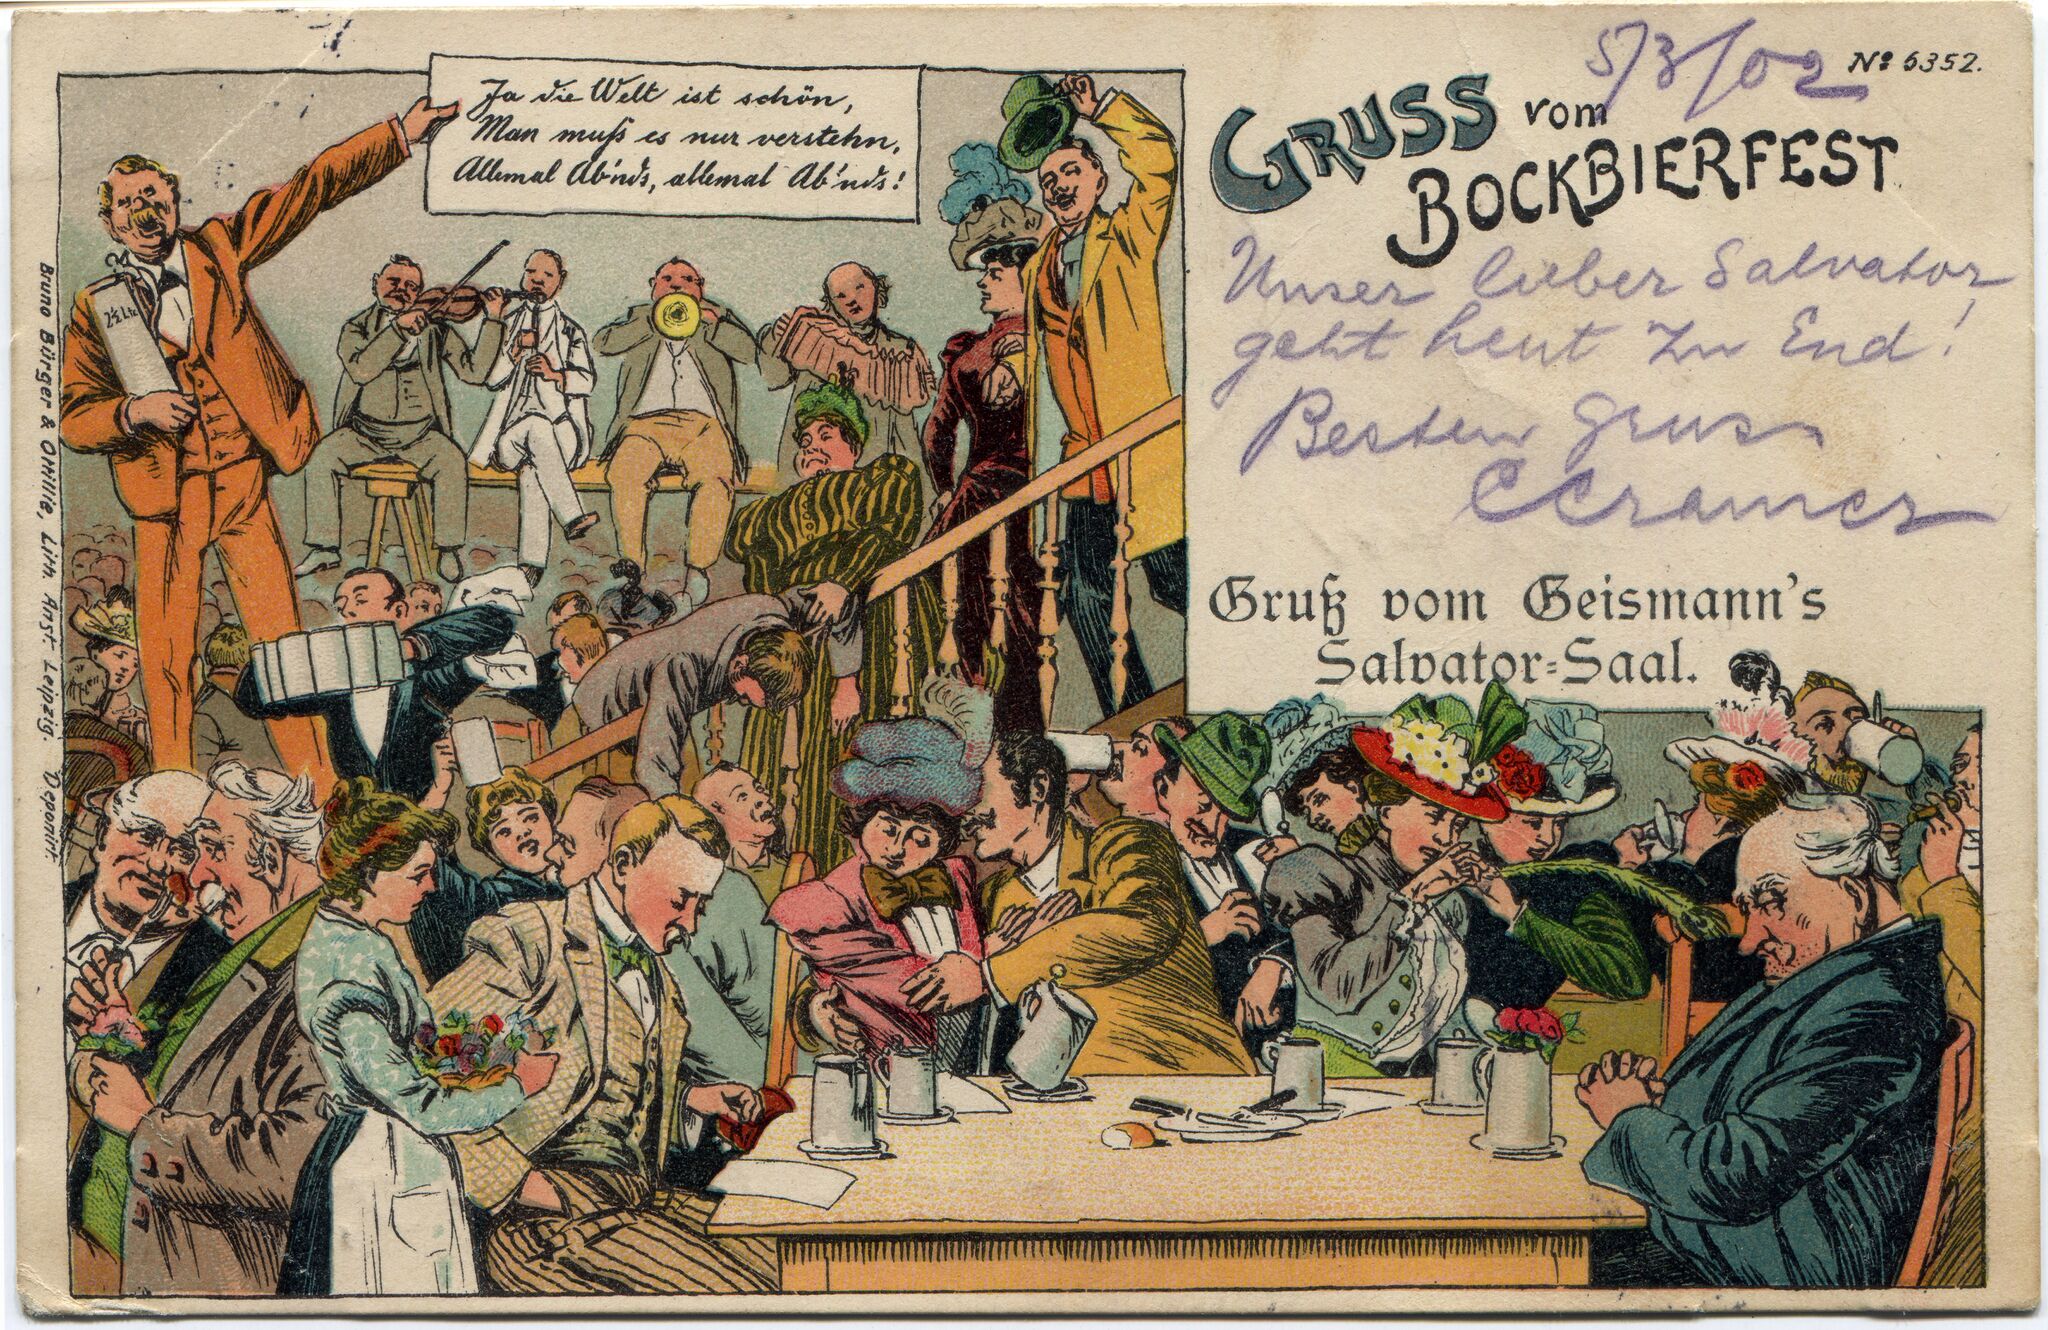 Ja die Welt ist schön,
Man muß es nur verstehn,
Allemal Ab'nds, allemal Ab'nds!
2½ Ltr.
5/3/02
No 6352.
GRUSS vom
BOCKBIERFEST
Unser lieber Salvator
geht heut zu End!
Besten Gruss
CCramer
Gruß vom Geismann's
Salvator=Saal.
Bruno Bürger & Ottilie, Lith. Anst. Leipzig. Deponirt.